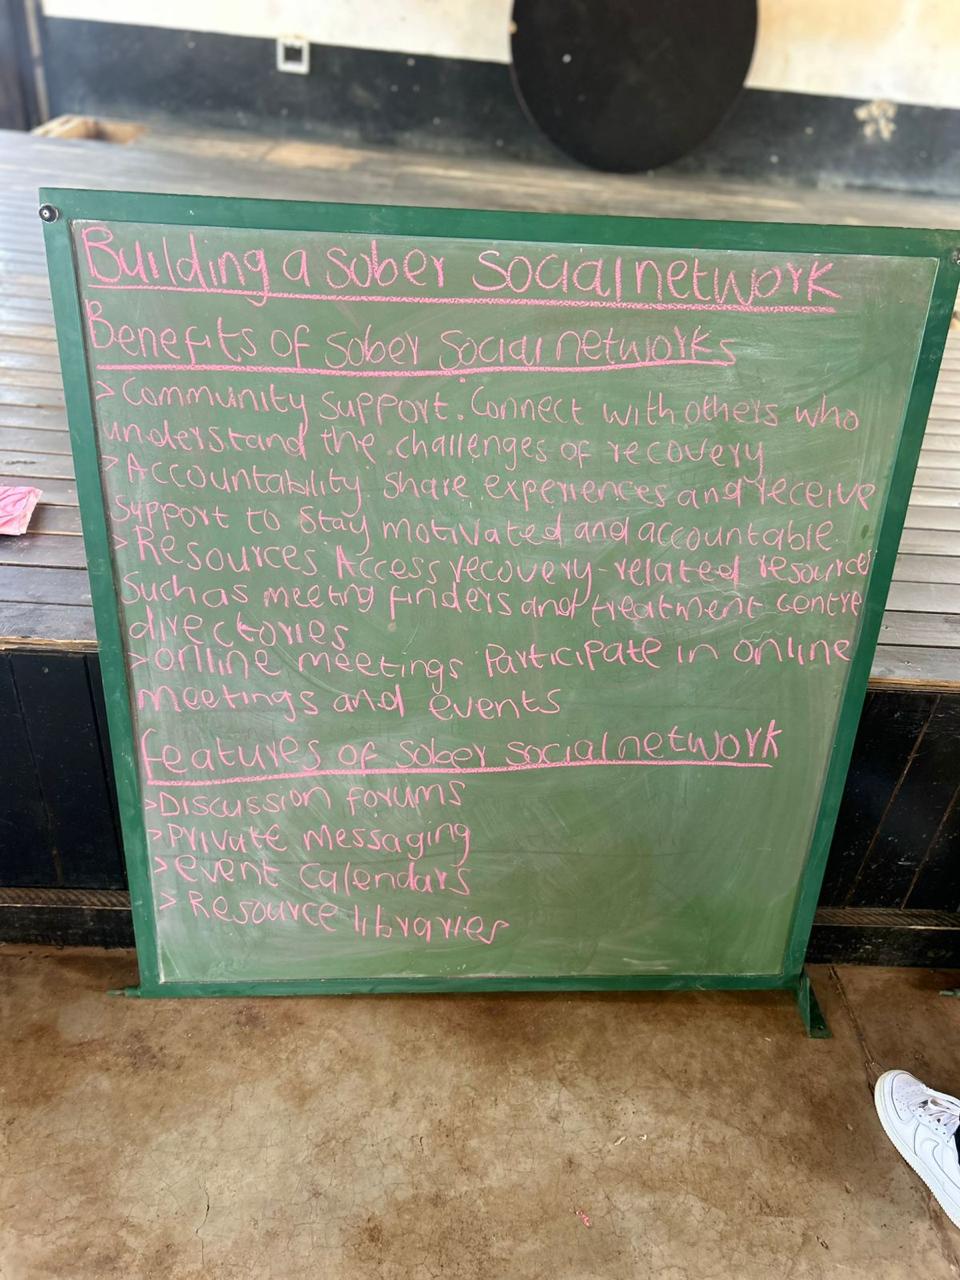 Building a sober social network
Benefits of sober social networks
> Community support. Connect with others who
understand the challenges of recovery
> Accountability share experiences and receive
support to stay motivated and accountable.
> Resources Access recovery-related resources
such as meeting finders and treatment centre
directories
> online meetings Participate in online
meetings and events
Features of sober social network
> Discussion forums
> Private messaging
> event calendars
> Resource libraries